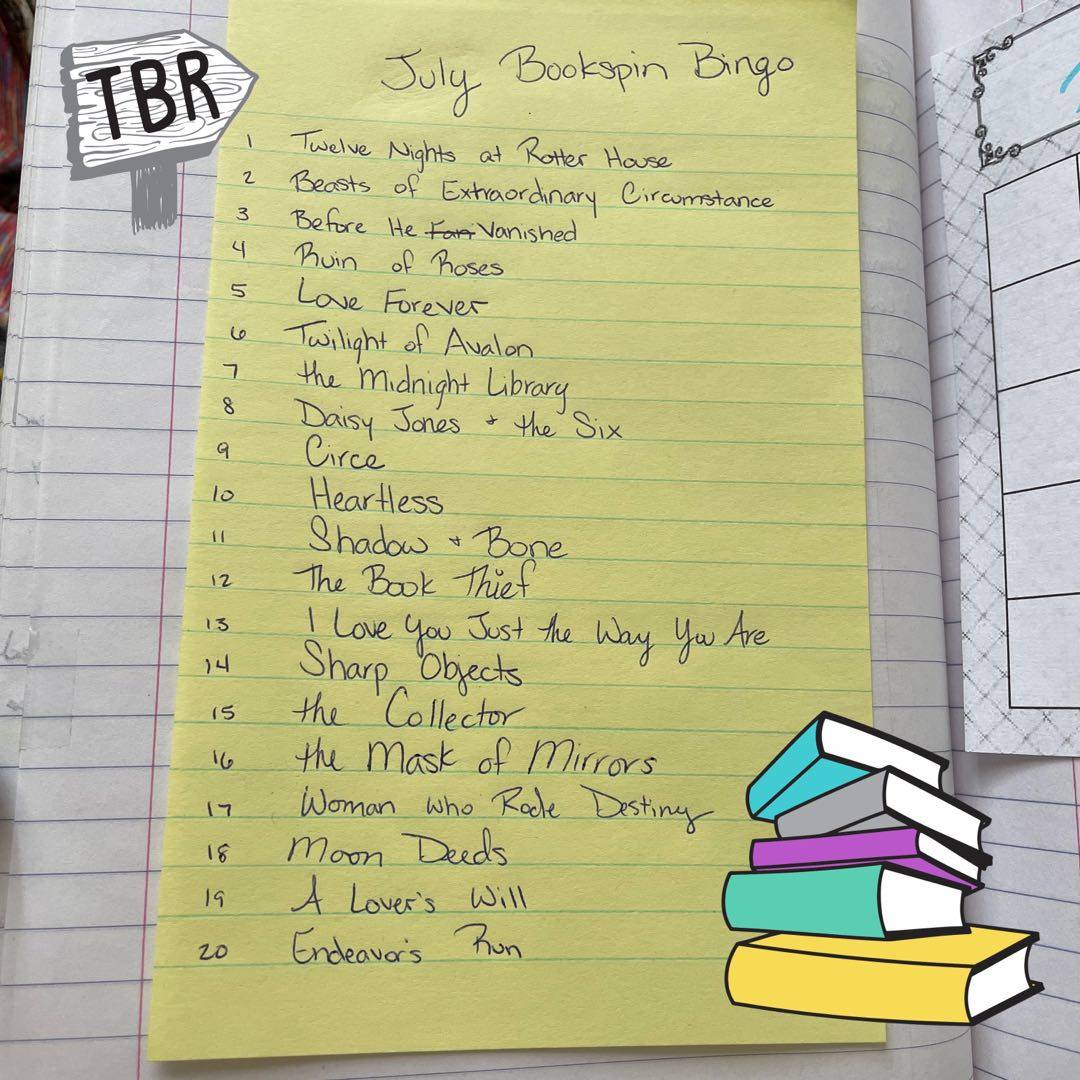 TBR
July Bookspin Bingo
1 Twelve Nights at Rotter House
2 Beasts of Extraordinary Circumstance
3 Before He Fan Vanished
4 Ruin of Roses
5 Love Forever
6 Twilight of Avalon
7 the Midnight Library
8 Daisy Jones + the Six
9 Circe
10 Heartless
11 Shadow + Bone
12 The Book Thief
13 I Love You Just the Way You Are
14 Sharp Objects
15 the Collector
16 the Mask of Mirrors
17 Woman who Rode Destiny
18 Moon Deeds
19 A Lover's Will
20 Endeavor's Run